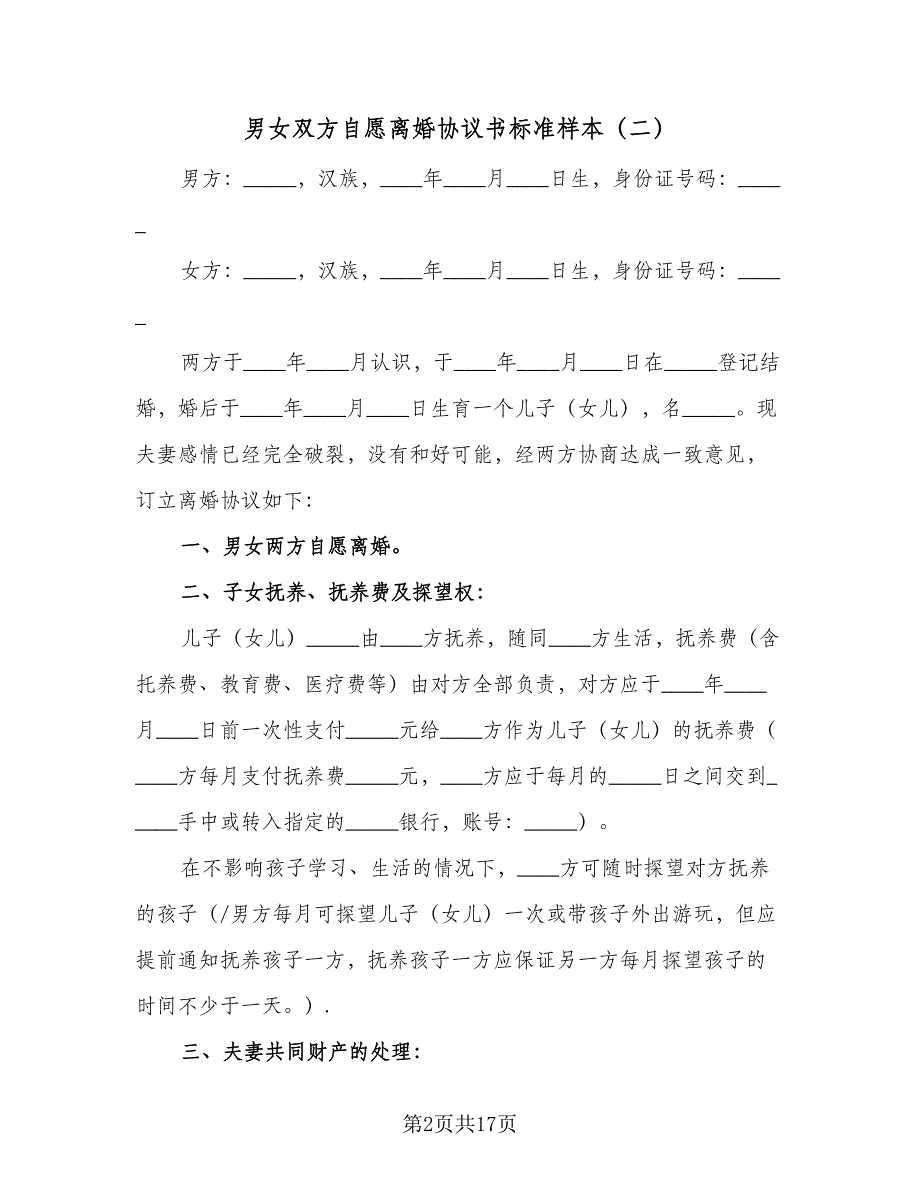 男女双方自愿离婚协议书标准样本（二）
男方：_____，汉族，____年____月____日生，身份证号码：____
_
女方：_____，汉族，____年____月____日生，身份证号码：____
_
两方于____年____月认识，于____年____月____日在_____登记结
婚，婚后于____年____月____日生育一个儿子（女儿），名_____。现
夫妻感情已经完全破裂，没有和好可能，经两方协商达成一致意见，
订立离婚协议如下：
一、男女两方自愿离婚。
二、子女抚养、抚养费及探望权：
儿子（女儿）_____由____方抚养，随同____方生活，抚养费（含
托养费、教育费、医疗费等）由对方全部负责，对方应于____年____
月____日前一次性支付_____元给____方作为儿子（女儿）的抚养费（
____方每月支付抚养费_____元，____方应于每月的_____日之间交到_
____手中或转入指定的_____银行，账号：_____）。
在不影响孩子学习、生活的情况下，____方可随时探望对方抚养
的孩子（/男方每月可探望儿子（女儿）一次或带孩子外出游玩，但应
提前通知抚养孩子一方，抚养孩子一方应保证另一方每月探望孩子的
时间不少于一天。）.
三、夫妻共同财产的处理：
第2页共17页